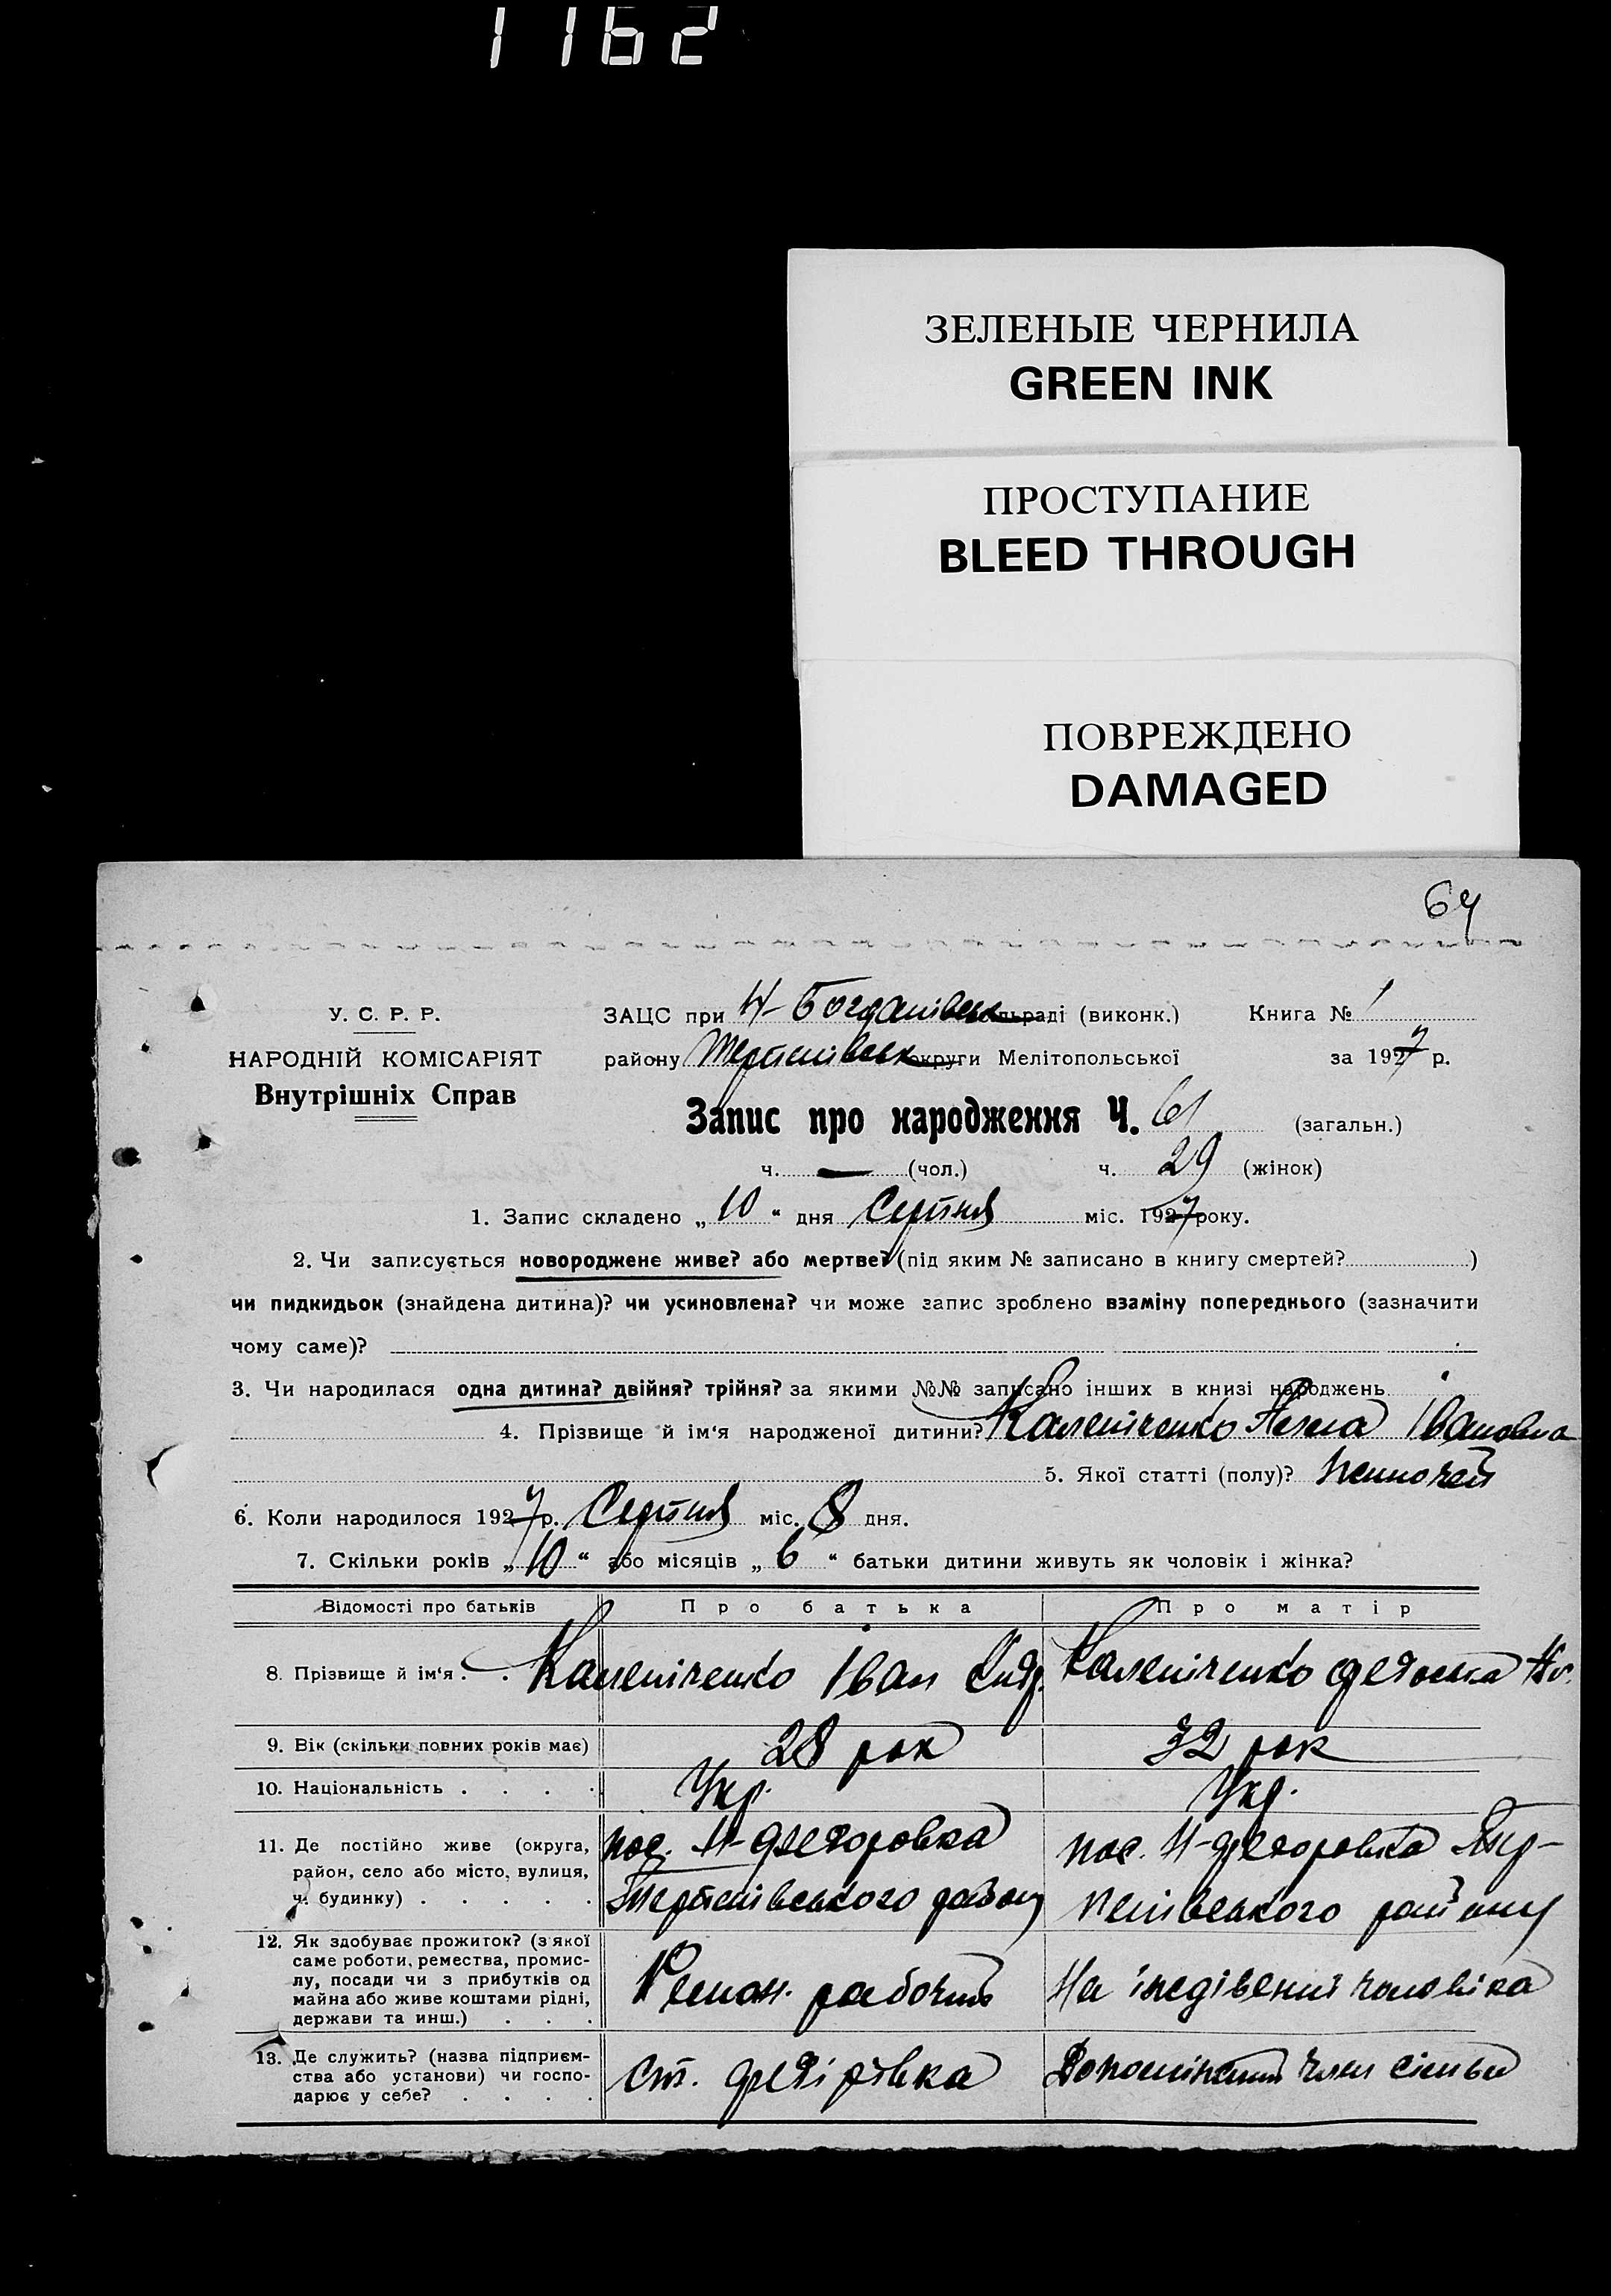 1162
ЗЕЛЕНЫЕ ЧЕРНИЛА
GREEN INK
ПРОСТУПАНИЕ
BLEED THROUGH
ПОВРЕЖДЕНО
DAMAGED
64
У. С. Р. Р.
НАРОДНІЙ КОМІСАРІЯТ
Внутрішніх Справ
ЗАЦС при Н-Богданівськ сільраді (виконк.) Книга № 1
району Терпенівськ округи Мелітопольської за 1927 р.
Запис про народження Ч. 61 (загальн.)
ч. — (чол.) ч. 29 (жінок)
1. Запис складено „ 10 “ дня Серпня міс. 1927 року.
2. Чи записується новороджене живе? або мертве? (під яким № записано в книгу смертей? )
чи пидкидьок (знайдена дитина)? чи усиновлена? чи може запис зроблено взаміну попереднього (зазначити
чому саме)?
3. Чи народилася одна дитина? двійня? трійня? за якими №№ записано інших в книзі народжень
4. Прізвище й ім‘я народженої дитини? Каленіченко Івановна
5. Якої статті (полу)? женочей
6. Коли народилося 1927 р. Серпня міс. 8 дня.
7. Скільки років „ 10 “ або місяців „ 6 “ батьки дитини живуть як чоловік і жінка?
Відомості про батьків Про батька Про матір
8. Прізвище й ім‘я . . Каленіченко Іван Каленіченко
9. Вік (скільки повних років має) 28 рок 32 рок
10. Національність . . . . Укр. Укр.
11. Де постійно живе (округа,
район, село або місто, вулиця,
ч. будинку) . . . . .
пос. Н-Федоровка
Терпенівського району
пос. Н-Федоровка Тер-
пенівського району
12. Як здобуває прожиток? (з якої
саме роботи, ремества, промис-
лу, посади чи з прибутків од
майна або живе коштами рідні,
держави та инш.) . . .
Ремон. рабочий
На іждівении чоловіка
13. Де служить? (назва підприєм-
ства або установи) чи госпо-
дарює у себе? . . . .
ст. Федірівка
член сімьи